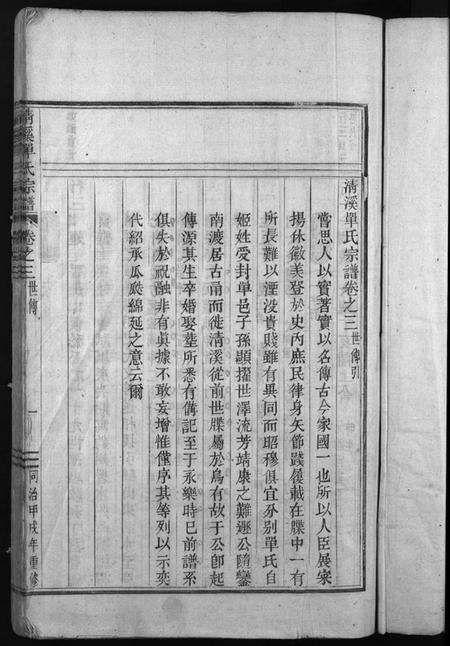 清溪單氏宗譜卷之三世傳引
嘗思人以實著實以名傳古今家國一也所以人臣展家
揚休徽美登於史內庶民律身矢節踐履載在牒中一有
所長難以湮没貴賤雖有異同而昭穆俱宜分别單氏自
姬姓受封单邑子孫顯擢世澤流芳靖康之難遯公隨鑾
南渡居古甬而徙清溪從前世牒屬於烏有故于公卽起
傳源其生卒婚娶塟所悉有俻記至于永樂時巳前譜系
俱失於祝融非有眞據不敢妄增惟僅序其等列以示奕
代紹承瓜瓞綿延之意云爾
清溪單氏宗譜
卷之三世傳
一
同治甲戌年重修